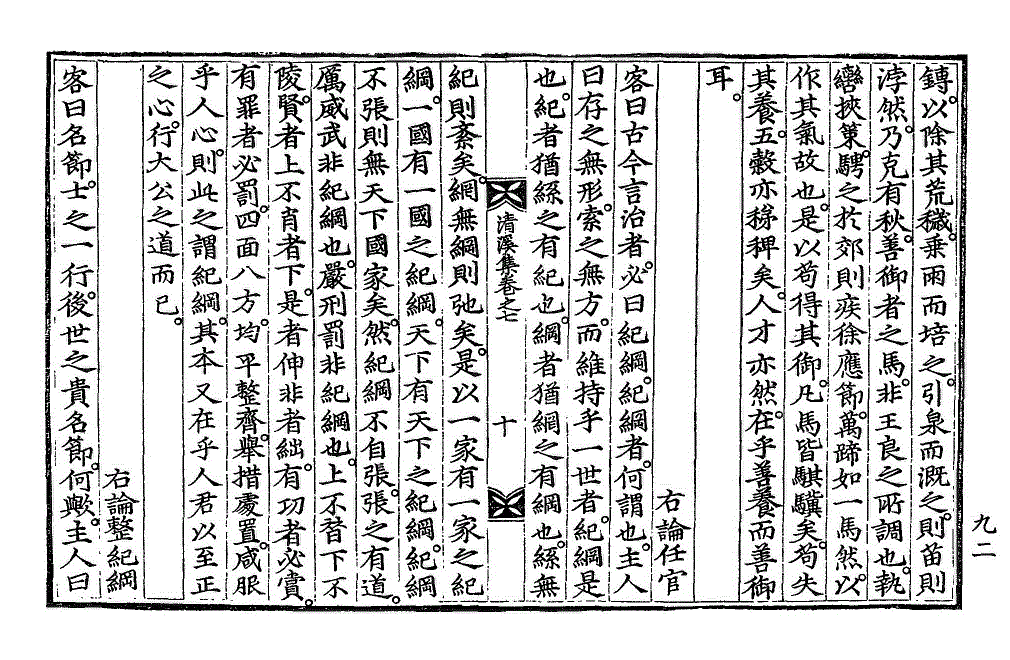 九二
鎛。以除其荒穢。乗雨而培之。引泉而漑之。則苗則
浡然。乃克有秋。善御者之馬。非王良之所調也。執
轡挾策。騁之於郊。則疾徐應節。萬蹄如一馬然。以
作其氣故也。是以苟得其御。凡馬皆騏驥矣。苟失
其養。五穀亦稊稗矣。人才亦然。在乎善養而善御
耳。
右論任官
客曰古今言治者。必曰紀綱。紀綱者。何謂也。主人
曰存之無形。索之無方。而維持乎一世者。紀綱是
也。紀者猶絲之有紀也。綱者猶網之有綱也。絲無
清溪集卷之七 十
紀則紊矣。網無綱則弛矣。是以一家有一家之紀
綱。一國有一國之紀綱。天下有天下之紀綱。紀綱
不張則無天下國家矣。然紀綱不自張。張之有道。
厲威武非紀綱也。嚴刑罰非紀綱也。上不朁下不
陵。賢者上不肖者下。是者伸非者絀。有功者必賞。
有罪者必罰。四面八方。均平整齊。擧措處置。咸服
乎人心。則此之謂紀綱。其本又在乎人君以至正
之心。行大公之道而已。
右論整紀綱
客曰名節。士之一行。後世之貴名節。何歟。主人曰